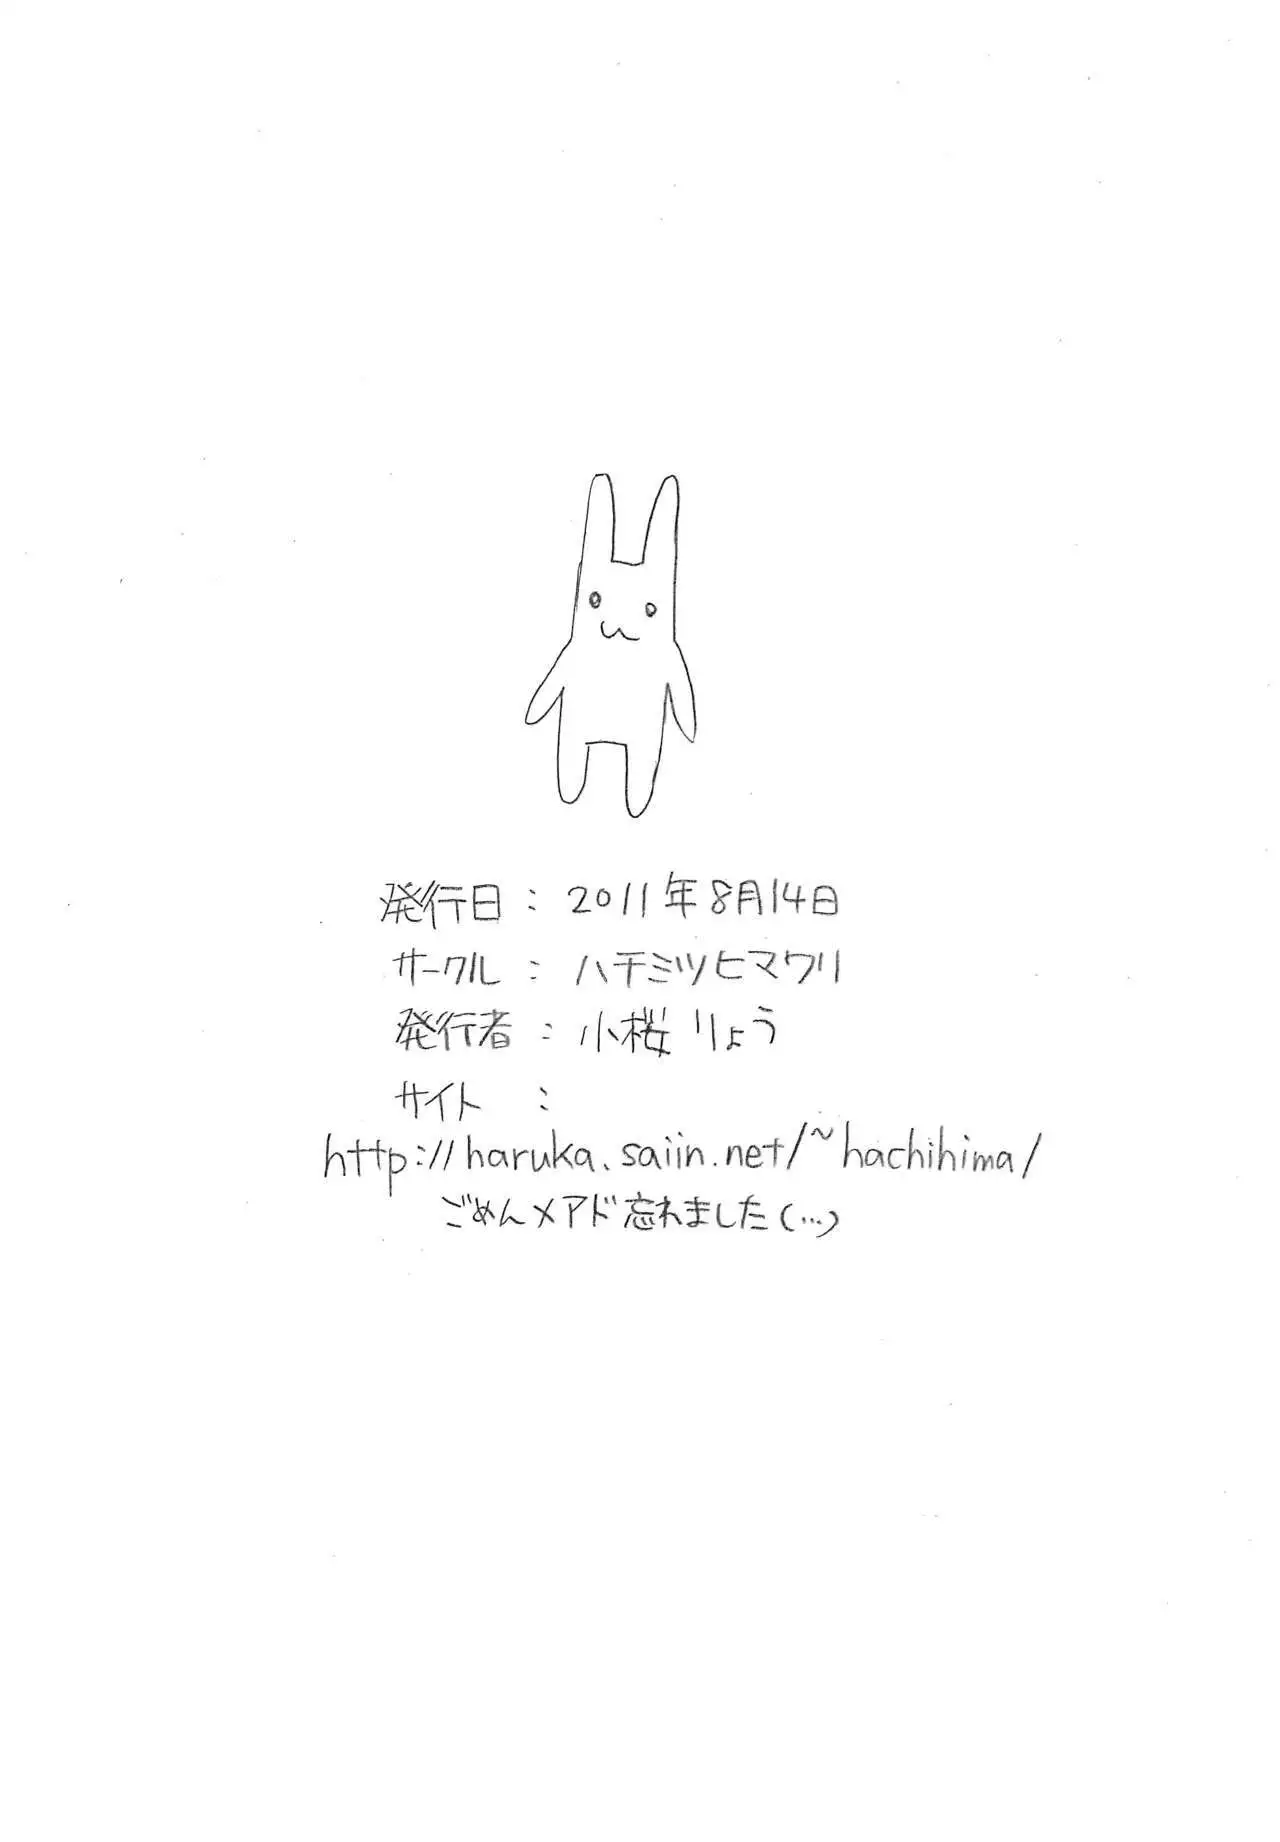 発行日：2011年8月14日
サークル：ハチミツヒマワリ
発行者：小桜りょう
サイト：
http://haruka.saiin.net/~hachihima/
ごめんメアド忘れました(…)